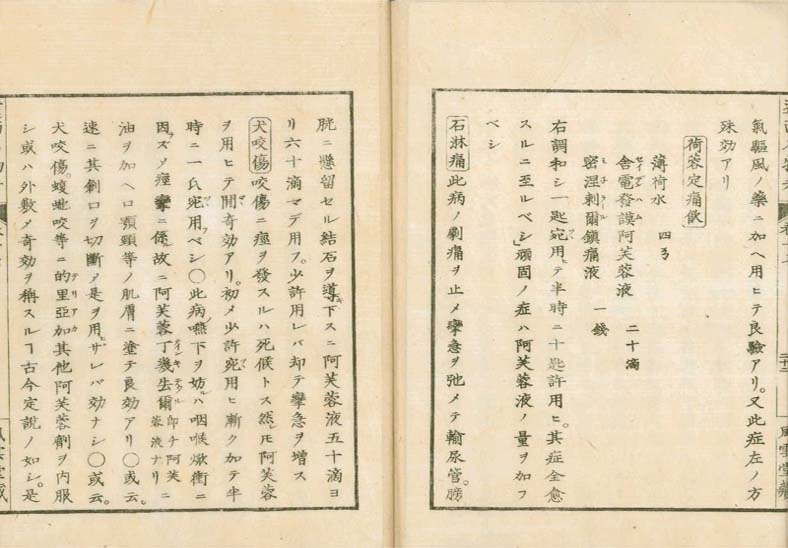 氣驅風ノ藥ニ加ヘ用ヒテ良驗アリ。又此症左ノ方
殊効アリ
荷蓉定痛飲
薄荷水　四ヲ
舎電發謨阿芙蓉液　二十滴
密涅剌爾鎮痛液　一錢
右調和シ一匙宛用ヒテ半時ニ十匙許用ヒ。其症全愈
スルニ至ルベシ」頑固ノ症ハ阿芙蓉液ノ量ヲ加フ
ベシ
石淋痛此病ノ劇痛ヲ止メ攣急ヲ弛メテ輸尿管。膀
胱ニ懸留セル結石ヲ導下スニ阿芙蓉液五十滴ヨ
リ六十滴マデ用フ。少許用レバ却テ攣急ヲ増ス
犬咬傷咬傷ニ痙ヲ發スルハ死候トス然ㇾ𪜈阿芙蓉
ヲ用ヒテ間奇効アリ。初メ少許宛用ヒ漸ク加テ半
時ニ一氏宛用フベシ〇此病嚥下ヲ妨ルハ咽喉焮衝ニ
因ラズ〆痙攣ニ係ル故ニ阿芙蓉丁幾去爾即チ阿芙蓉液ナリニ
油ヲ加ヘ口顎頸等ノ肌膚ニ塗テ良効アリ〇或云。
速ニ其創口ヲ切斷〆是ヲ用ヒザレバ効ナシ〇或云。
犬咬傷。蝮虵咬等ニ的里亞加其他阿芙蓉劑ヲ内服
シ或ハ外敷〆奇効ヲ稱スルヿ古今定説ノ如シ。是
風雲堂藏